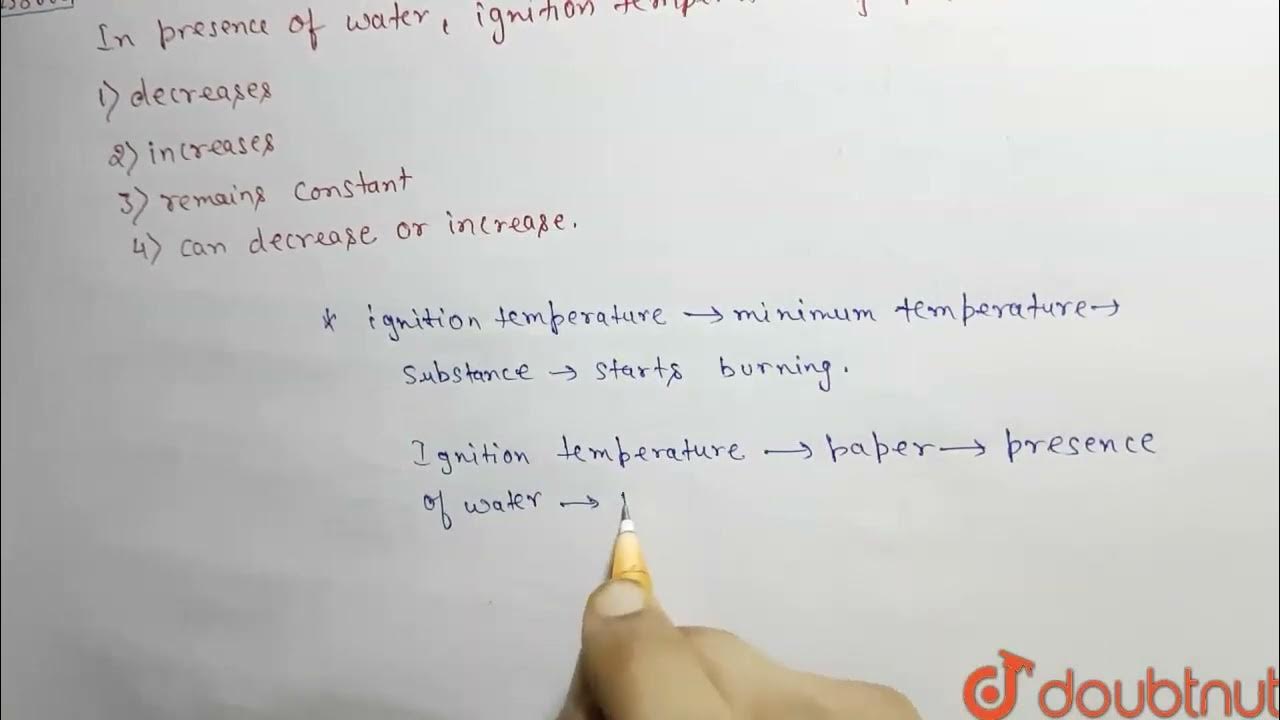 In presence of water, ignition
1) decreases
2) increases
3) remains constant
4) can decrease or increase.
* ignition temperature → minimum temperature →
substance → starts burning.
Ignition temperature → paper → presence
of water →
doubtnut